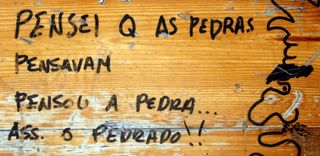 PENSEI Q AS PEDRAS
PENSAVAM
PENSOU A PEDRA...
ASS. O PEDRADO!!